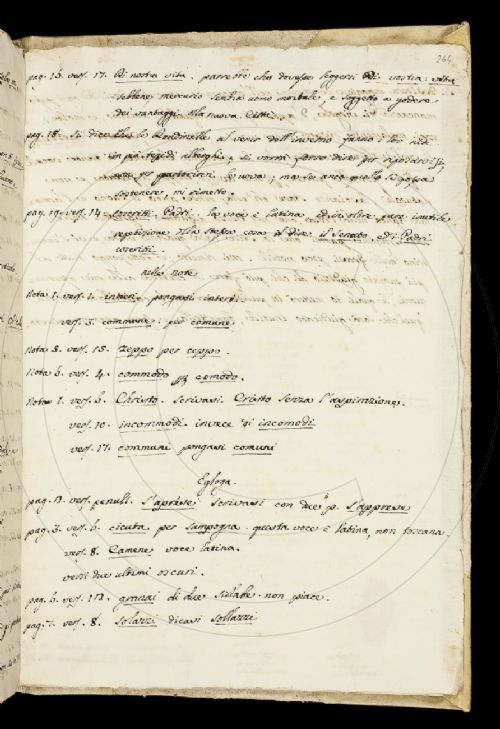 264
pag. 16. vers. 17. Di nostra vita. parrebbe che dovesse leggersi di vostra vita
sebbene mercurio sembra uomo mortale, e soggetto a godere
dei vantaggi alla nuova Città.
pag. 18. Si dice che le Rondinelle al venir dell'inverno fanno i lor nidi
in più tepidi alberghi; si vorrà forse dire per riposarvisi,
non per partorirvi le uova; ma se anco quello si possa
sostenere, mi rimetto.
pag. 19. vers. 14. Coscritti Padri. la voce è latina, ed inoltre pare inutile
repetizione della stessa cosa il dire il Senato, ed i Padri
coscritti.
nelle note
Nota 1. vers. 1. intieri pongasi interi.
vers. 5. commune: più comune.
Nota 5. vers. 15. Zeppo per ceppo.
Nota 6. vers. 4. commodo per comodo.
Nota 7. vers. 6. Christo. scrivasi Cristo senza l'aspirazione.
vers. 10. incommodi invece di incomodi
vers. 17. communi pongasi comuni
Egloga.
pag. 13. vers. penult. s'aprese scrivasi con due p. s'apprese
pag. 3. vers. 6. cicuta per Sampogna. questa voce è latina, non toscana.
vers. 8. Camene voce latina.
versi due ultimi oscuri.
pag. 6. vers. 13. granai di due sillabe. non piace.
pag. 7. vers. 8. solazzi dicasi sollazzi